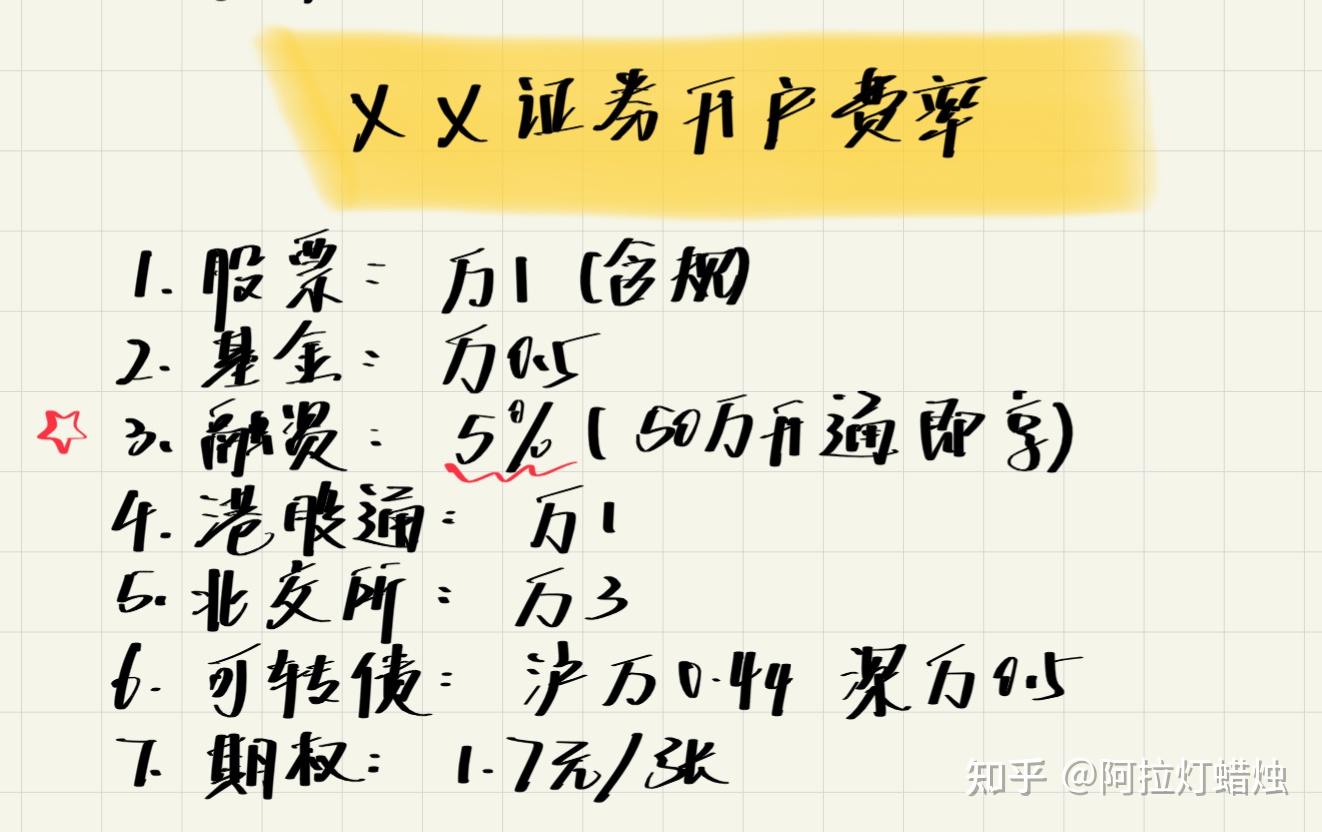 XX证券开户费率
1. 股票：万1（含规）
2. 基金：万0.5
3. 融资：5%（50万开通即享）
4. 港股通：万1
5. 北交所：万3
6. 可转债：沪万0.44 深万0.5
7. 期权：1.7元/张
知乎 @阿拉灯蜡烛